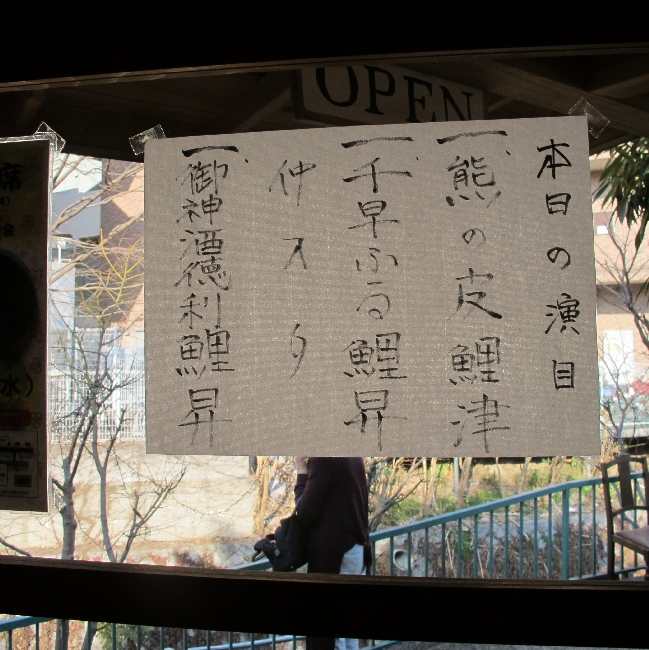 OPEN
本日の演目
一、熊の皮 鯉津
一、千早ふる 鯉昇
仲入り
一、御神酒徳利 鯉昇
席
会
水）